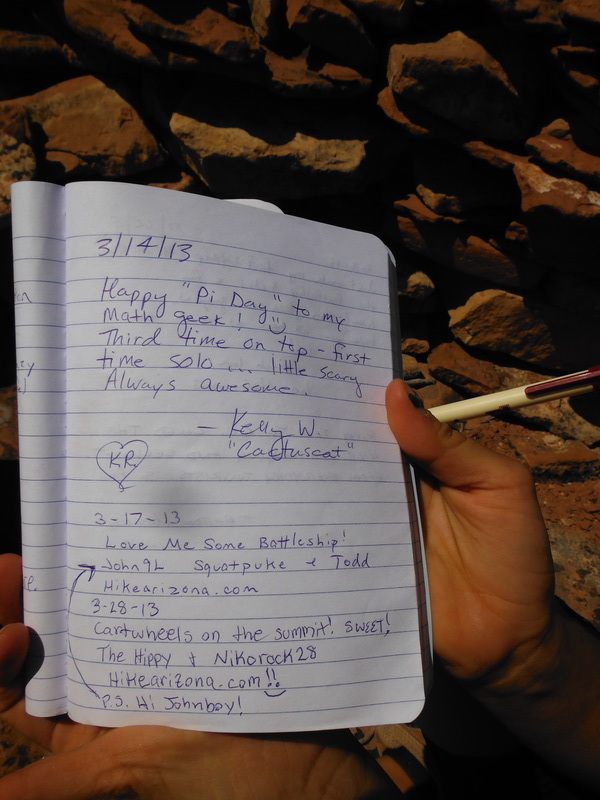 3/14/13
Happy "Pi Day" to my
Math geek!
Third time on top - first
time solo ... little scary
Always awesome.
- Kelly W.
"Cactuscat"
KR
3-17-13
Love Me Some Battleship!
John9L Squatpuke & Todd
Hikearizona.com
3-28-13
Cartwheels on the summit! SWEET!
The Hippy & Nikorock28
Hikearizona.com!!
P.S. Hi Johnboy!